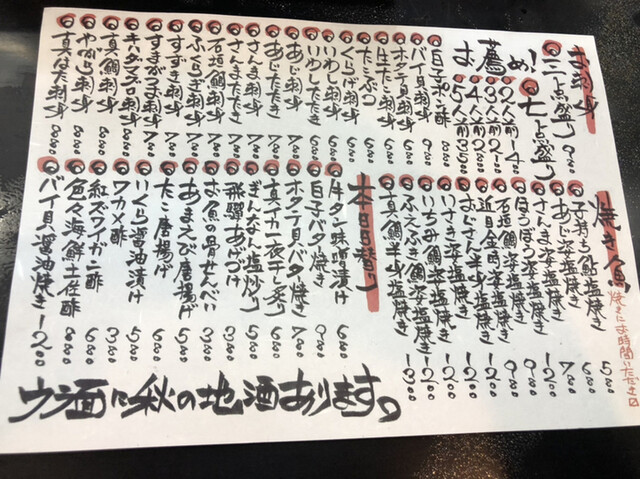 お刺身
三点盛り 900
七点盛り
お薦め!
2人前 1400
3人前 2100
4人前 2800
5人前 3500
白子ポン酢 800
バイ貝刺身 900
ホタテ貝刺身 700
生たこ刺身 600
たこぶつ 600
くらげ刺身 600
いわし刺身 600
いわしたたき 600
あじ刺身 700
あじたたき 700
さんま刺身 700
さんまたたき 700
ふくらぎ刺身 700
石垣鯛刺身 700
すずき刺身 700
すまがつお刺身 700
キハダマグロ刺身 700
真鯛刺身 800
やがら刺身 800
真はた刺身 800
焼き魚
焼きにお時間いただき〼
子持ち鮎塩焼き 500
あじ姿塩焼き 600
さんま姿塩焼き 700
ほうぼう姿塩焼き 1200
石垣鯛姿塩焼き 900
近目金時姿塩焼き 900
おじさん姿塩焼き 1200
いさき姿塩焼き 1200
いちみ鯛姿塩焼き 1200
ふえふき鯛姿塩焼き 1200
真鯛半身塩焼き 1300
本日替り
牛タン味噌漬け 600
白子バタ焼き 900
ホタテ貝バタ焼き 700
真イカ一夜干し炙り 600
ぎんなん塩炒り 500
飛騨あげづけ 300
お魚の骨せんべい 300
あまえび唐揚げ 500
たこ唐揚げ 600
いくら醤油漬け 500
ワカメ酢 300
紅ズワイガニ酢 600
色々海鮮土佐酢 800
バイ貝醤油焼き 1200
ウラ面に秋の地酒あります。